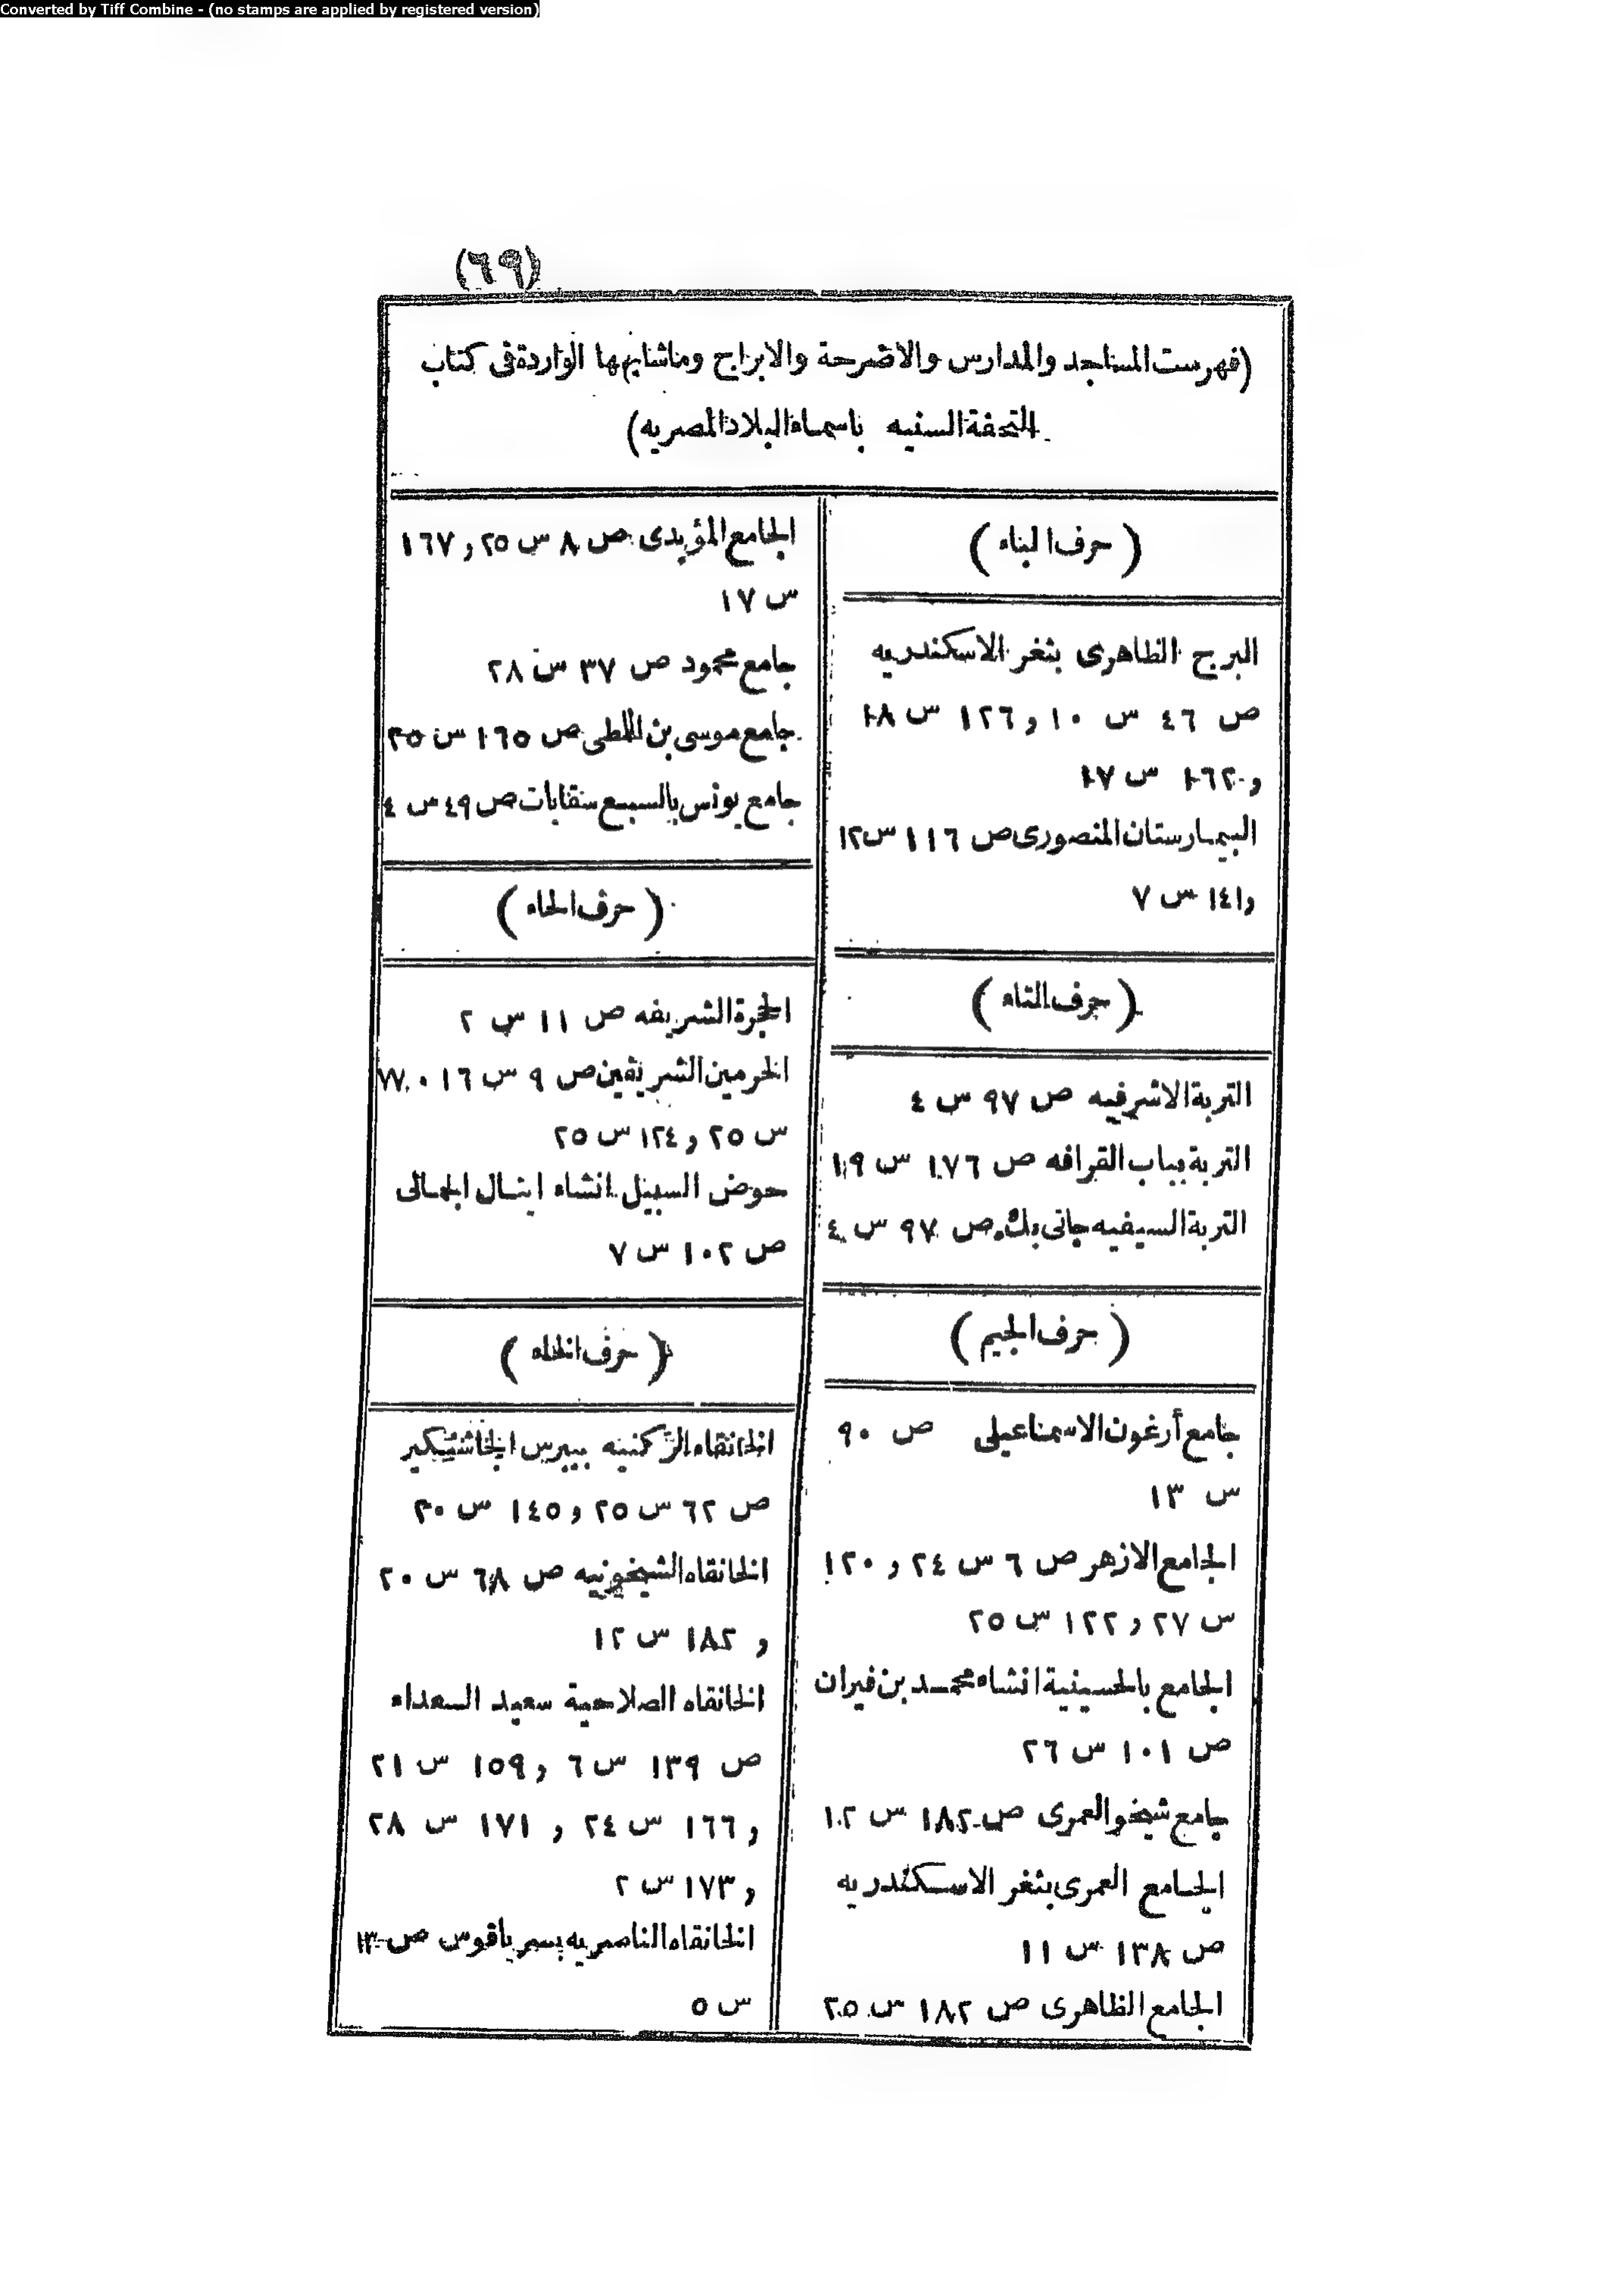 Converted by Tiff Combine - (no stamps are applied by registered version)
(٦٩)
(فهرست المساجد والمدارس والاضرحة والابراج وماشابهها الواردة فى كتاب
التحفة السنيه باسماء البلاد المصريه)
(حرف الباء)
البرج الظاهرى بثغر الاسكندريه
ص ٤٦ س ١٠ و ١٢٦ س ١٨
و ١٦٢ س ١٧
البيمارستان المنصورى ص ١١٦ س ١٢
و١٤١ س ٧
(حرف التاء)
التربة الاشرفيه ص ٩٧ س ٤
التربة بباب القرافه ص ١٧٦ س ١٩
التربة السيفيه جانى بك ص ٩٧ س ٤
(حرف الجيم)
جامع أرغون الاسماعيلى ص ٩٠
س ١٣
الجامع الازهر ص ٦ س ٢٤ و ١٢٠
س ٢٧ و ١٢٢ س ٢٥
الجامع بالحسينية انشاء محمد بن فيران
ص ١٠١ س ٢٦
جامع شيخو العمرى ص ١٨٢ س ١٢
الجامع العمرى بثغر الاسكندريه
ص ١٣٨ س ١١
الجامع الظاهرى ص ١٨٢ س ٢٥
الجامع المؤيدى ص ٨ س ٢٥ و ١٦٧
س ١٧
جامع محمود ص ٣٧ س ٢٨
جامع موسى بن اللطى ص ١٦٥ س
جامع يونس بالسبع سقايات ص ٤٩ س ٤
(حرف الحاء)
الحجرة الشريفه ص ١١ س ٢
الحرمين الشريفين ص ٩ س ١٦
س ٢٥ و ١٢٤ س ٢٥
حوض السبيل انشاء اينال الجمالى
ص ١٠٢ س ٧
(حرف الخاء)
الخانقاه الركنيه بيبرس الجاشنكير
ص ٦٢ س ٢٥ و ١٤٥ س
الخانقاه الشيخونيه ص ٦٨ س ٢٠
و ١٨٢ س ١٢
الخانقاه الصلاحية سعيد السعداء
ص ١٣٩ س ٦ و ١٥٩ س ٢١
و ١٦٦ س ٢٤ و ١٧١ س ٢٨
و ١٧٣ س ٢
الخانقاه الناصريه بسرياقوس ص ١٣٠
س ٥